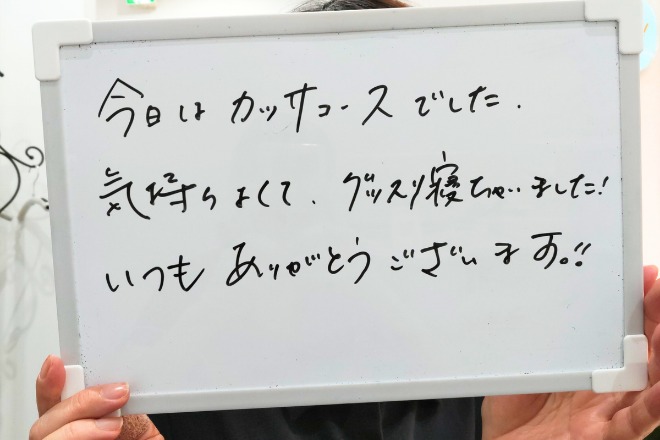 今日は カッサコースでした.
気持ちよくて、グッスリ寝ちゃいました!
いつも ありがとうございます。!!